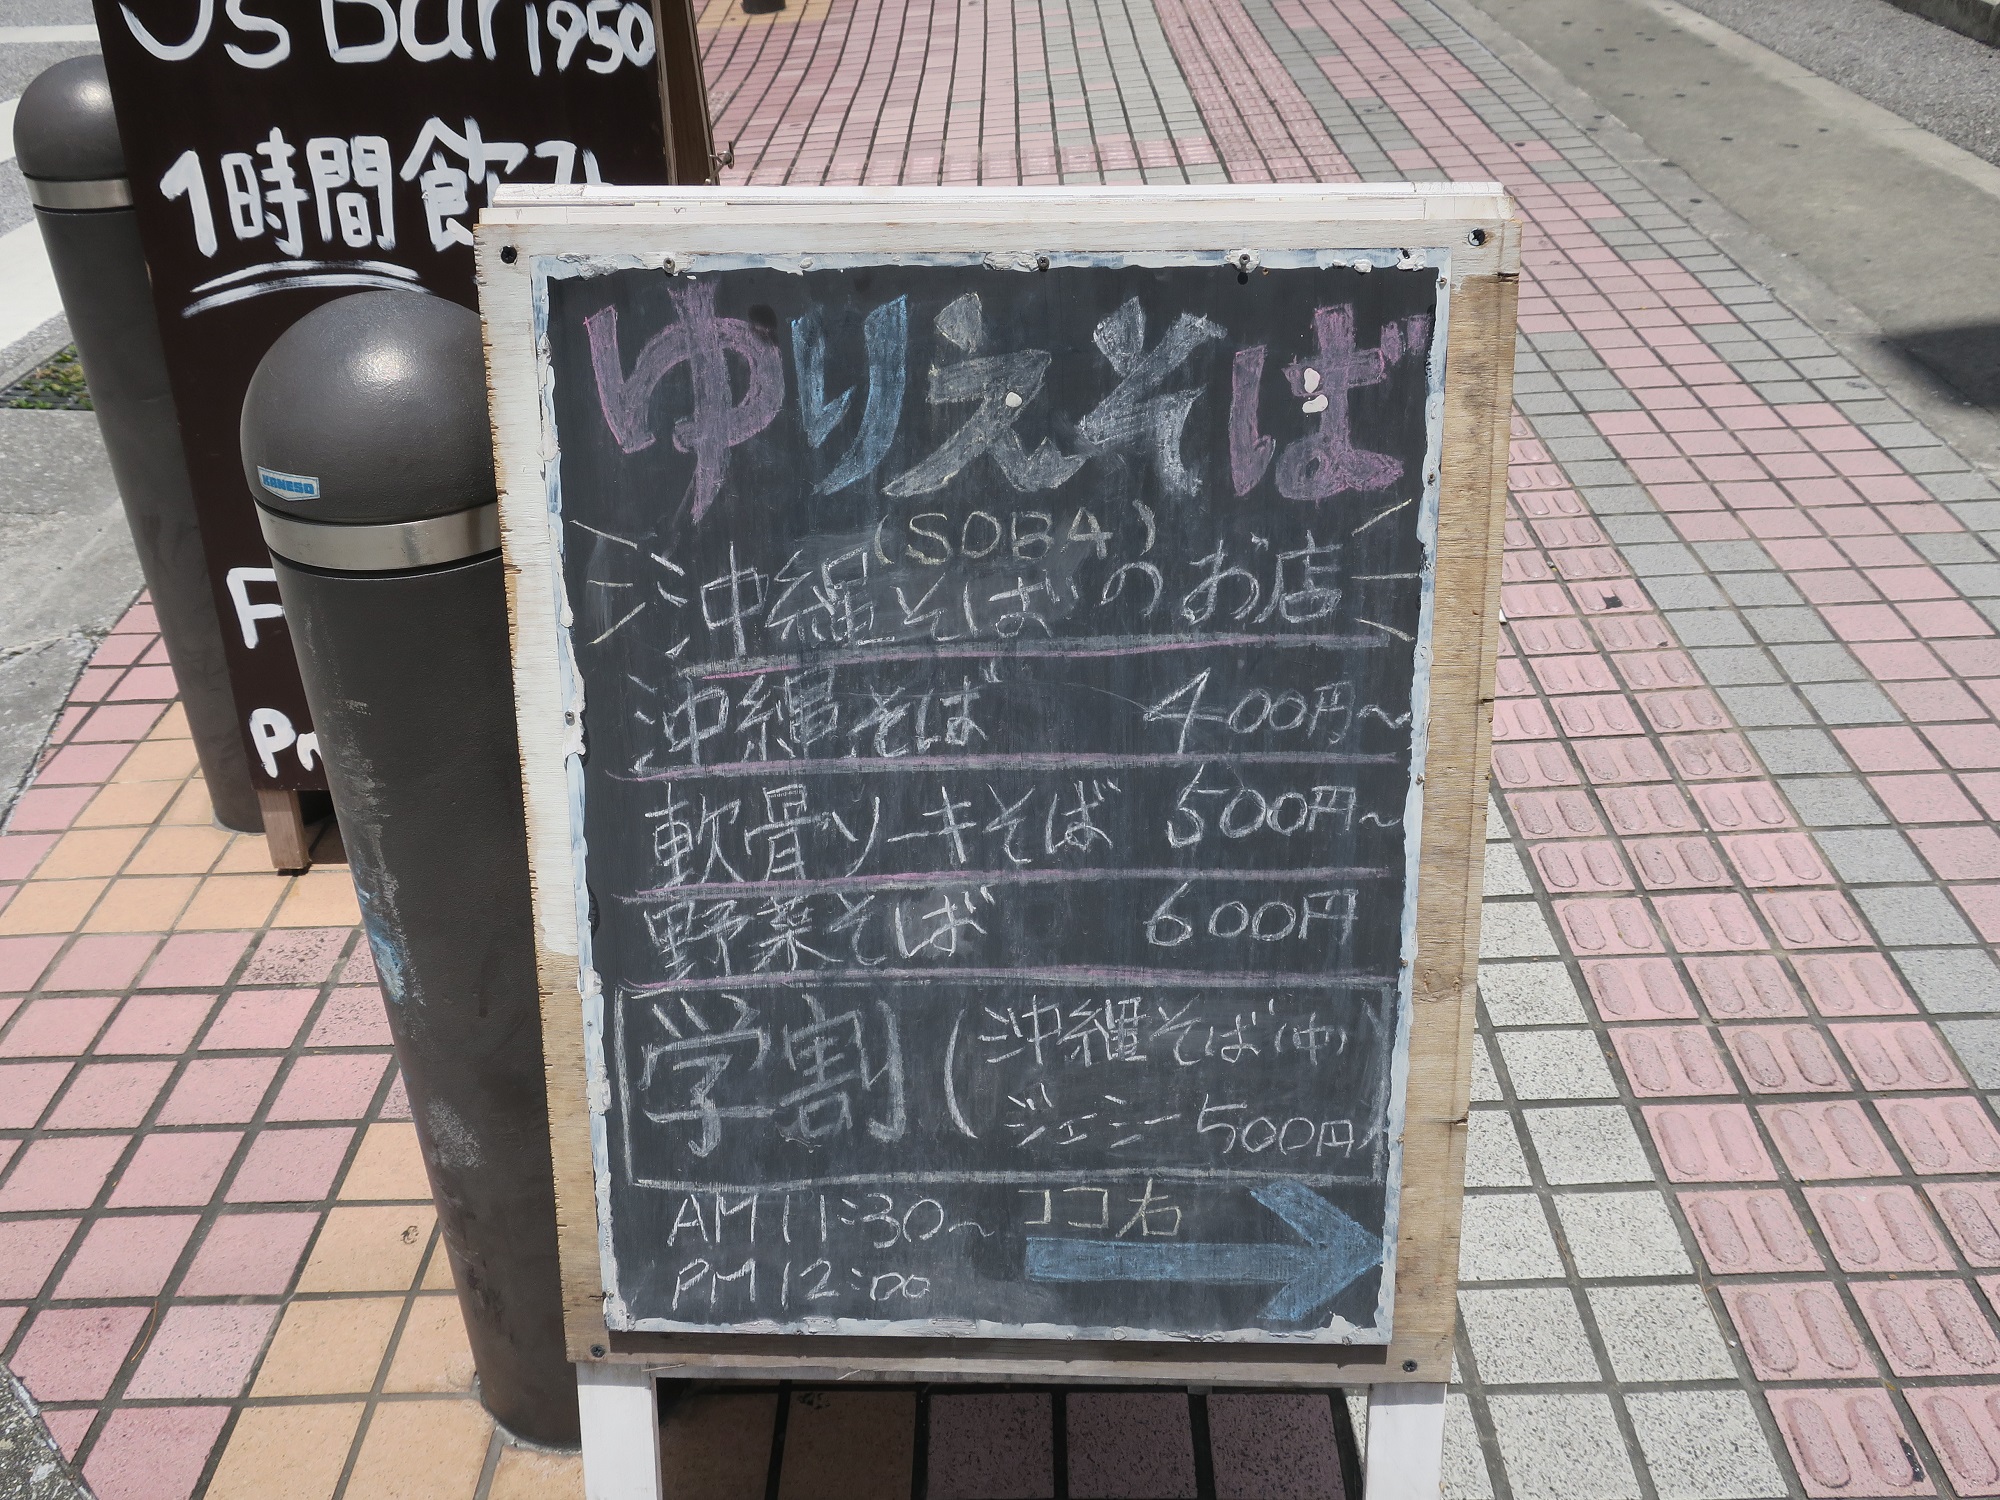 Js Bar 1950
1時間飲み
KANESO
ゆりえそば
(SOBA)
沖縄そばのお店
沖縄そば 400円~
軟骨ソーキそば 500円~
野菜そば 600円
学割(沖縄そば(中)
ジューシー500円)
AM11:30~ ココ右
PM12:00